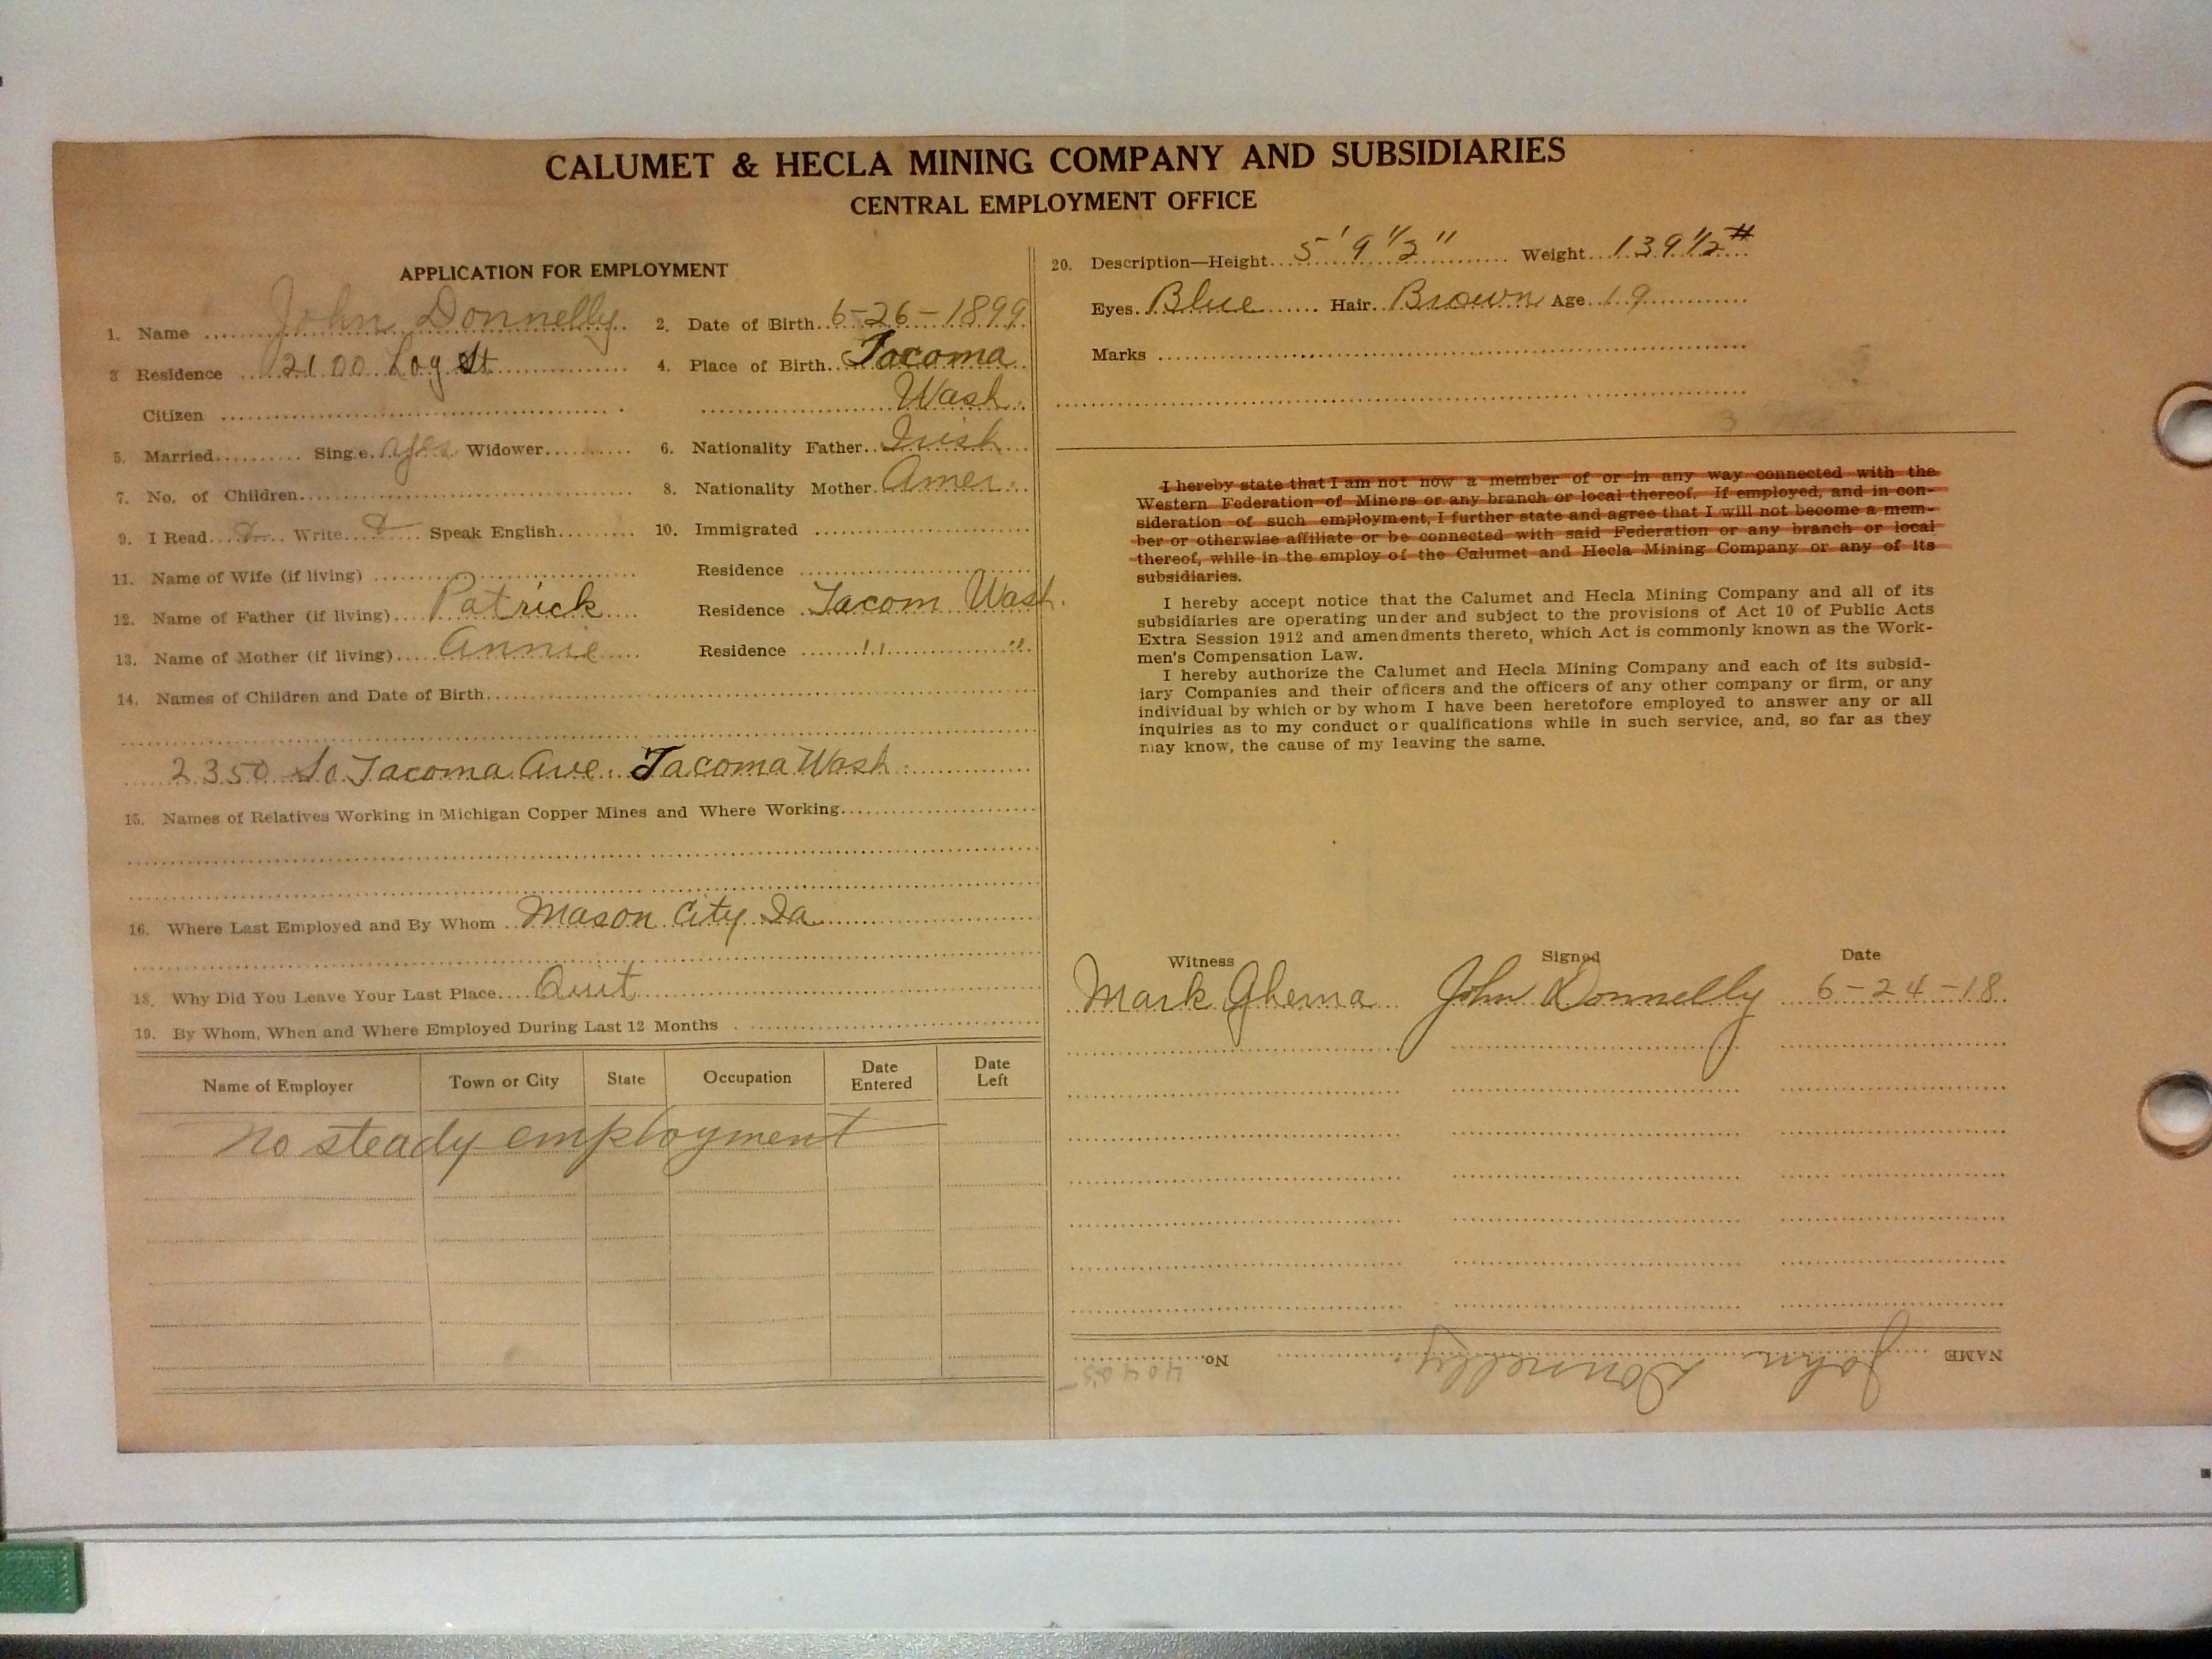 CALUMET & HECLA MINING COMPANY AND SUBSIDIARIES
CENTRAL EMPLOYMENT OFFICE
APPLICATION FOR EMPLOYMENT
1. Name John Donnelly 2. Date of Birth 6-26-1899
3 Residence 2100 Log St 4. Place of Birth Tacoma
Citizen Wash.
5. Married Single yes Widower 6. Nationality Father Irish
7. No. of Children 8. Nationality Mother Amer.
9. I Read Write Speak English 10. Immigrated
11. Name of Wife (if living) Residence
12. Name of Father (if living) Patrick Residence Tacom Wash.
13. Name of Mother (if living) Annie Residence " "
14. Names of Children and Date of Birth
2350 So Tacoma Ave. Tacoma Wash.
15. Names of Relatives Working in Michigan Copper Mines and Where Working
16. Where Last Employed and By Whom Mason City Ia
18. Why Did You Leave Your Last Place Quit
19. By Whom, When and Where Employed During Last 12 Months
Name of Employer Town or City State Occupation Date Entered Date Left
No steady employment
20. Description—Height 5' 9 1/2" Weight 139 1/2 #
Eyes Blue Hair Brown Age 19
Marks
I hereby state that I am not now a member of or in any way connected with the
Western Federation of Miners or any branch or local thereof. If employed, and in con-
sideration of such employment, I further state and agree that I will not become a mem-
ber or otherwise affiliate or be connected with said Federation or any branch or local
thereof, while in the employ of the Calumet and Hecla Mining Company or any of its
subsidiaries.
I hereby accept notice that the Calumet and Hecla Mining Company and all of its
subsidiaries are operating under and subject to the provisions of Act 10 of Public Acts
Extra Session 1912 and amendments thereto, which Act is commonly known as the Work-
men's Compensation Law.
I hereby authorize the Calumet and Hecla Mining Company and each of its subsid-
iary Companies and their officers and the officers of any other company or firm, or any
individual by which or by whom I have been heretofore employed to answer any or all
inquiries as to my conduct or qualifications while in such service, and, so far as they
may know, the cause of my leaving the same.
Witness Signed Date
Mark Ghema John Donnelly 6-24-18
NAME John Donnelly No.